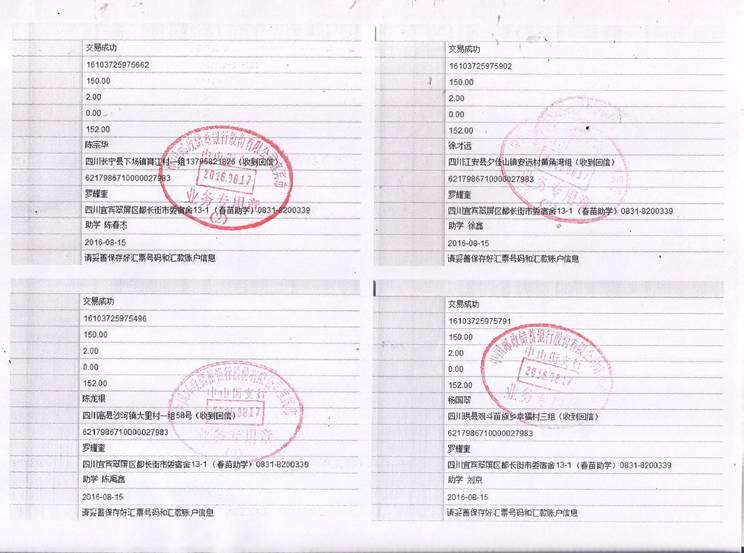 交易成功
16103725975662
150.00
2.00
0.00
152.00
陈宗华
四川长宁县下场镇商江村一组13795821826（收到回信）
6217986710000027983
罗耀奎
四川宜宾翠屏区都长街市委宿舍13-1（春苗助学）0831-8200339
助学 陈春杰
2016-08-15
请妥善保存好汇票号码和汇款账户信息
2016.08.17
业务专用章
(2)
交易成功
16103725975902
150.00
2.00
0.00
152.00
徐才远
四川江安县夕佳山镇安远村黄角湾组（收到回信）
6217986710000027983
罗耀奎
四川宜宾翠屏区都长街市委宿舍13-1（春苗助学）0831-8200339
助学 徐鑫
2016-08-15
请妥善保存好汇票号码和汇款账户信息
交易成功
16103725975496
150.00
2.00
0.00
152.00
陈龙银
四川高县沙河镇大里村一组58号（收到回信）
6217986710000027983
罗耀奎
四川宜宾翠屏区都长街市委宿舍13-1（春苗助学）0831-8200339
助学 陈禹鑫
2016-08-15
请妥善保存好汇票号码和汇款账户信息
中山街支行
2016.08.17
业务专用章
交易成功
16103725975791
150.00
2.00
0.00
152.00
杨国翠
四川珙县观斗苗族乡幸福村三组（收到回信）
6217986710000027983
罗耀奎
四川宜宾翠屏区都长街市委宿舍13-1（春苗助学）0831-8200339
助学 刘京
2016-08-15
请妥善保存好汇票号码和汇款账户信息
中山街支行
2016.08.17
业务专用章